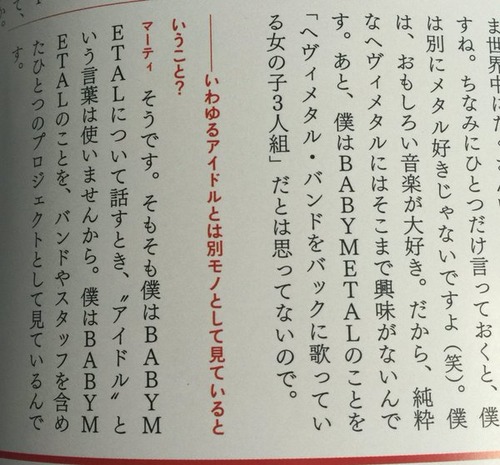 ま世界中に
すね。ちなみにひとつだけ言っておくと、僕
は別にメタル好きじゃないですよ（笑）。僕
は、おもしろい音楽が大好き。だから、純粋
なヘヴィメタルにはそこまで興味がないんで
す。あと、僕はBABYMETALのことを
「ヘヴィメタル・バンドをバックに歌ってい
る女の子3人組」だとは思ってないので。
――いわゆるアイドルとは別モノとして見ていると
いうこと？
マーティ　そうです。そもそも僕はBABYM
ETALについて話すとき、〝アイドル〟と
いう言葉は使いませんから。僕はBABYM
ETALのことを、バンドやスタッフを含め
たひとつのプロジェクトとして見ているんで
す。